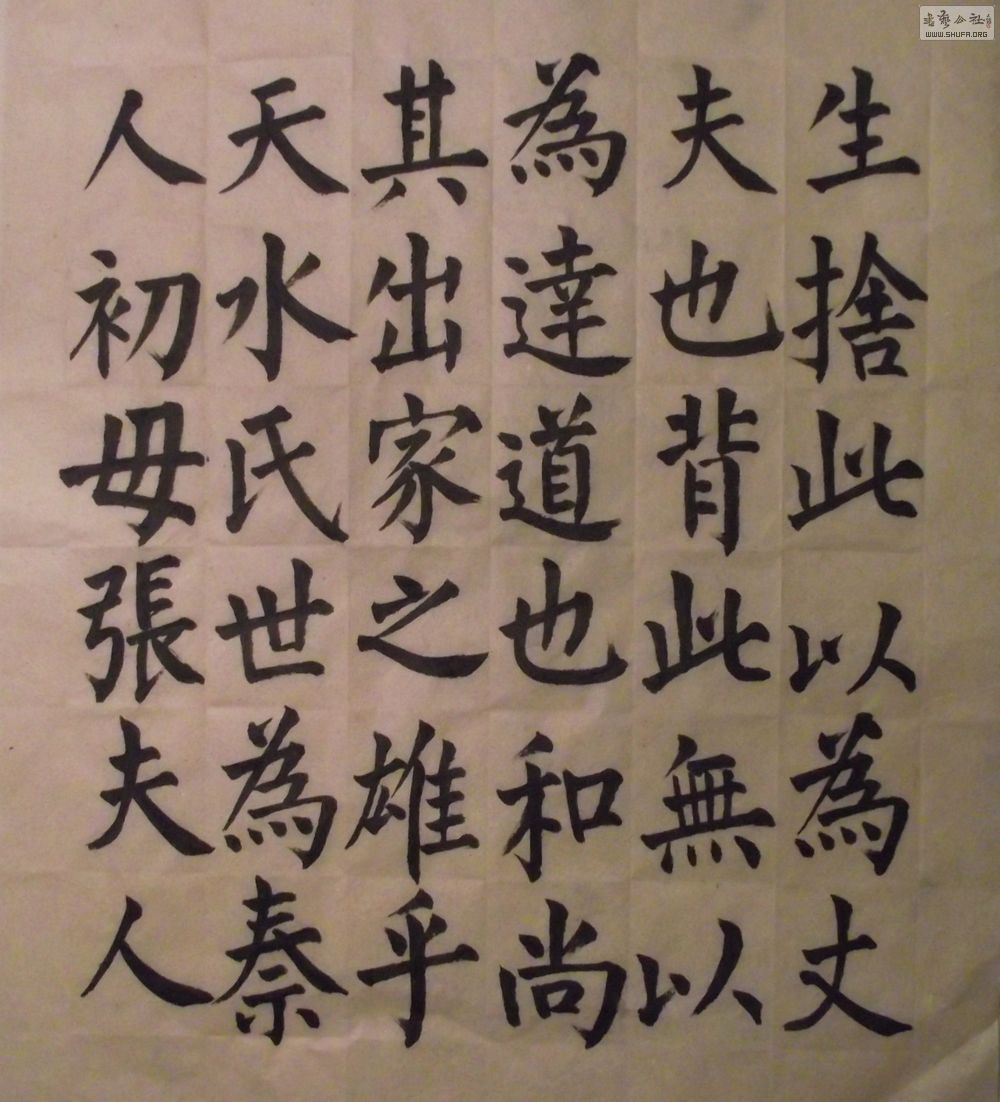 生捨此以為丈
夫也背此無以
為達道也和尚
其出家之雄乎
天水氏世為秦
人初母張夫人
書藝公社
WWW.SHUFA.ORG